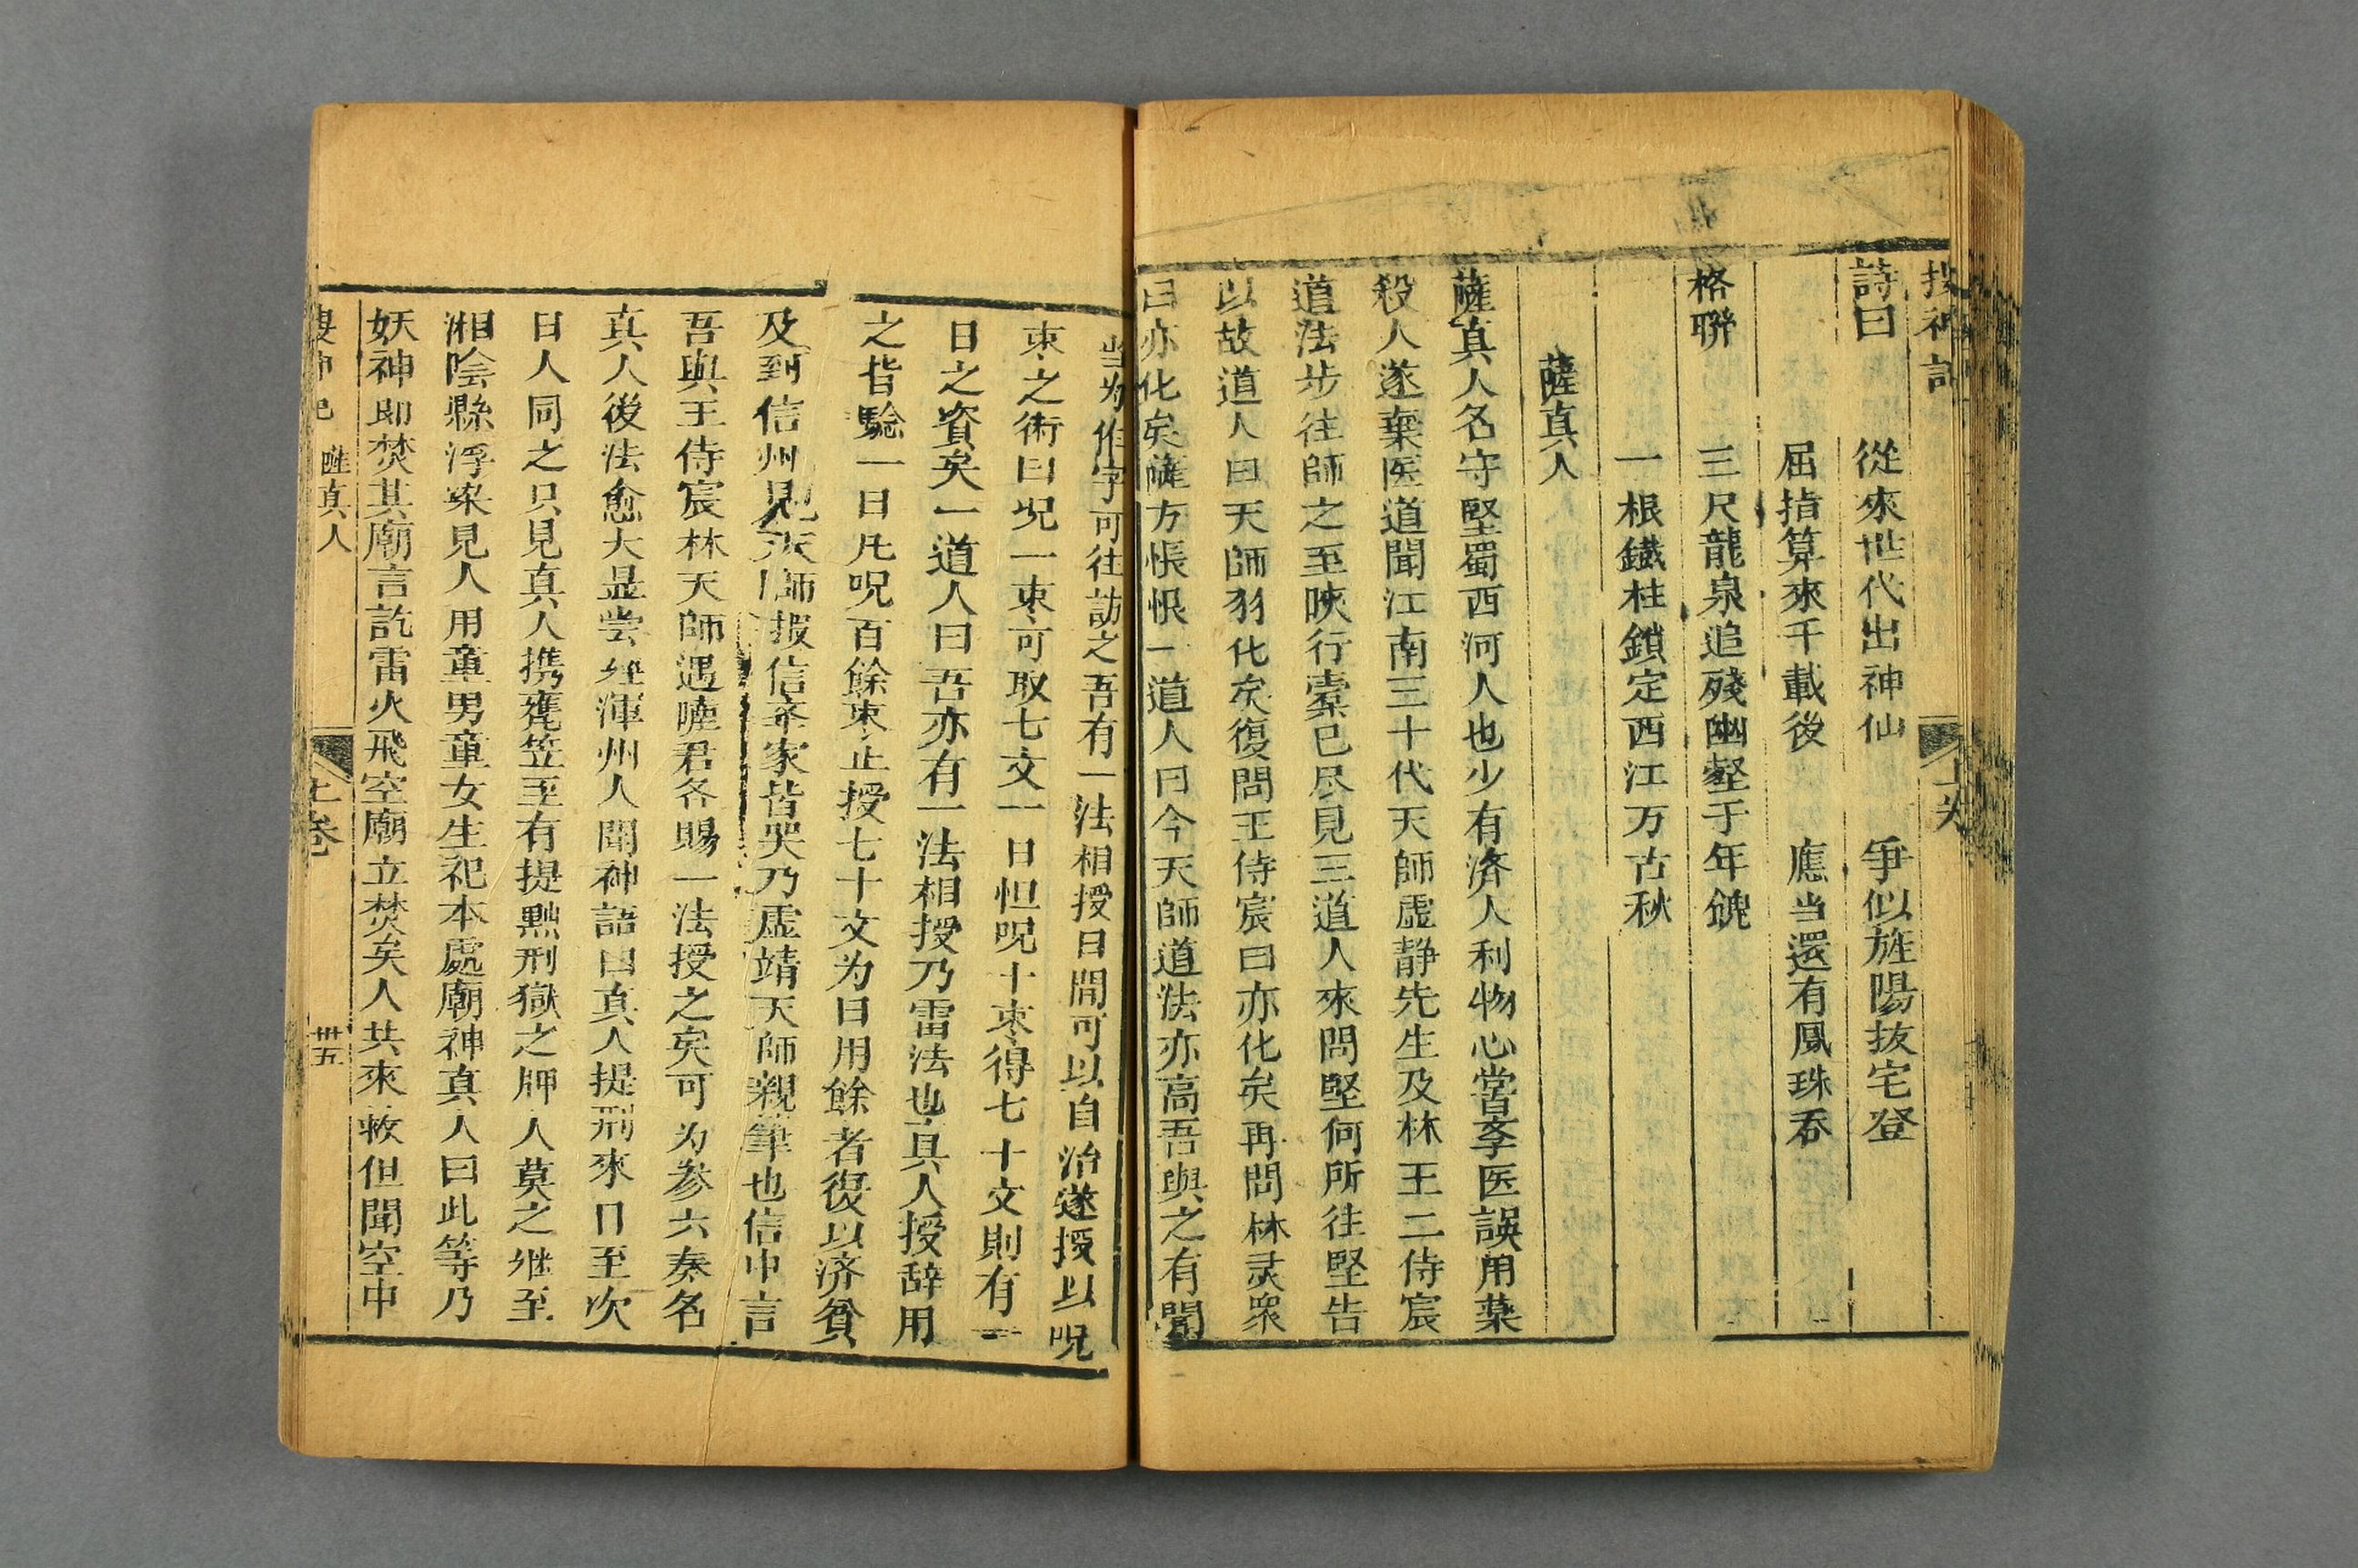 搜神記 上卷
詩曰 從來世代出神仙 爭似旌陽拔宅登
屈指算來千載後 應当還有鳳珠吞
格聯 三尺龍泉追殘幽壑于年
一根鐵柱鎖定西江万古秋
薩真人
薩真人名守堅蜀西河人也少有済人利物心嘗斈医誤用薬
殺人遂棄医道聞江南三十代天師虛静先生及林王二侍宸
道法步往師之至陝行橐已尽見三道人來問堅何所往堅告
以故道人曰天師羽化矣復問王侍宸曰亦化矣再問林灵衆
曰亦化矣薩方悵恨一道人曰今天師道法亦高吾與之有閗
当为作字可往訪之吾有一法相授日間可以自治遂授以呪
枣之術曰呪一枣可取七文一日但呪十枣得七十文則有一
日之資矣一道人曰吾亦有一法相授乃雷法也真人授辞用
之皆驗一日凡呪百餘枣止授七十文为日用餘者復以济貧
及到信州見天師投信举家皆哭乃虛靖天師親筆也信中言
吾與王侍宸林天師遇薩君各賜一法授之矣可为参六奏名
真人後法愈大显尝经渾州人聞神語曰真人提刑來日至次
日人同之只見真人携甕笠至有提點刑獄之牌人莫之继至
湘陰縣浮梁見人用童男童女生祀本處廟神真人曰此等乃
妖神即焚其廟言訖雷火飛空廟立焚矣人共來救但聞空中
搜神記 薩真人 上卷 卅五